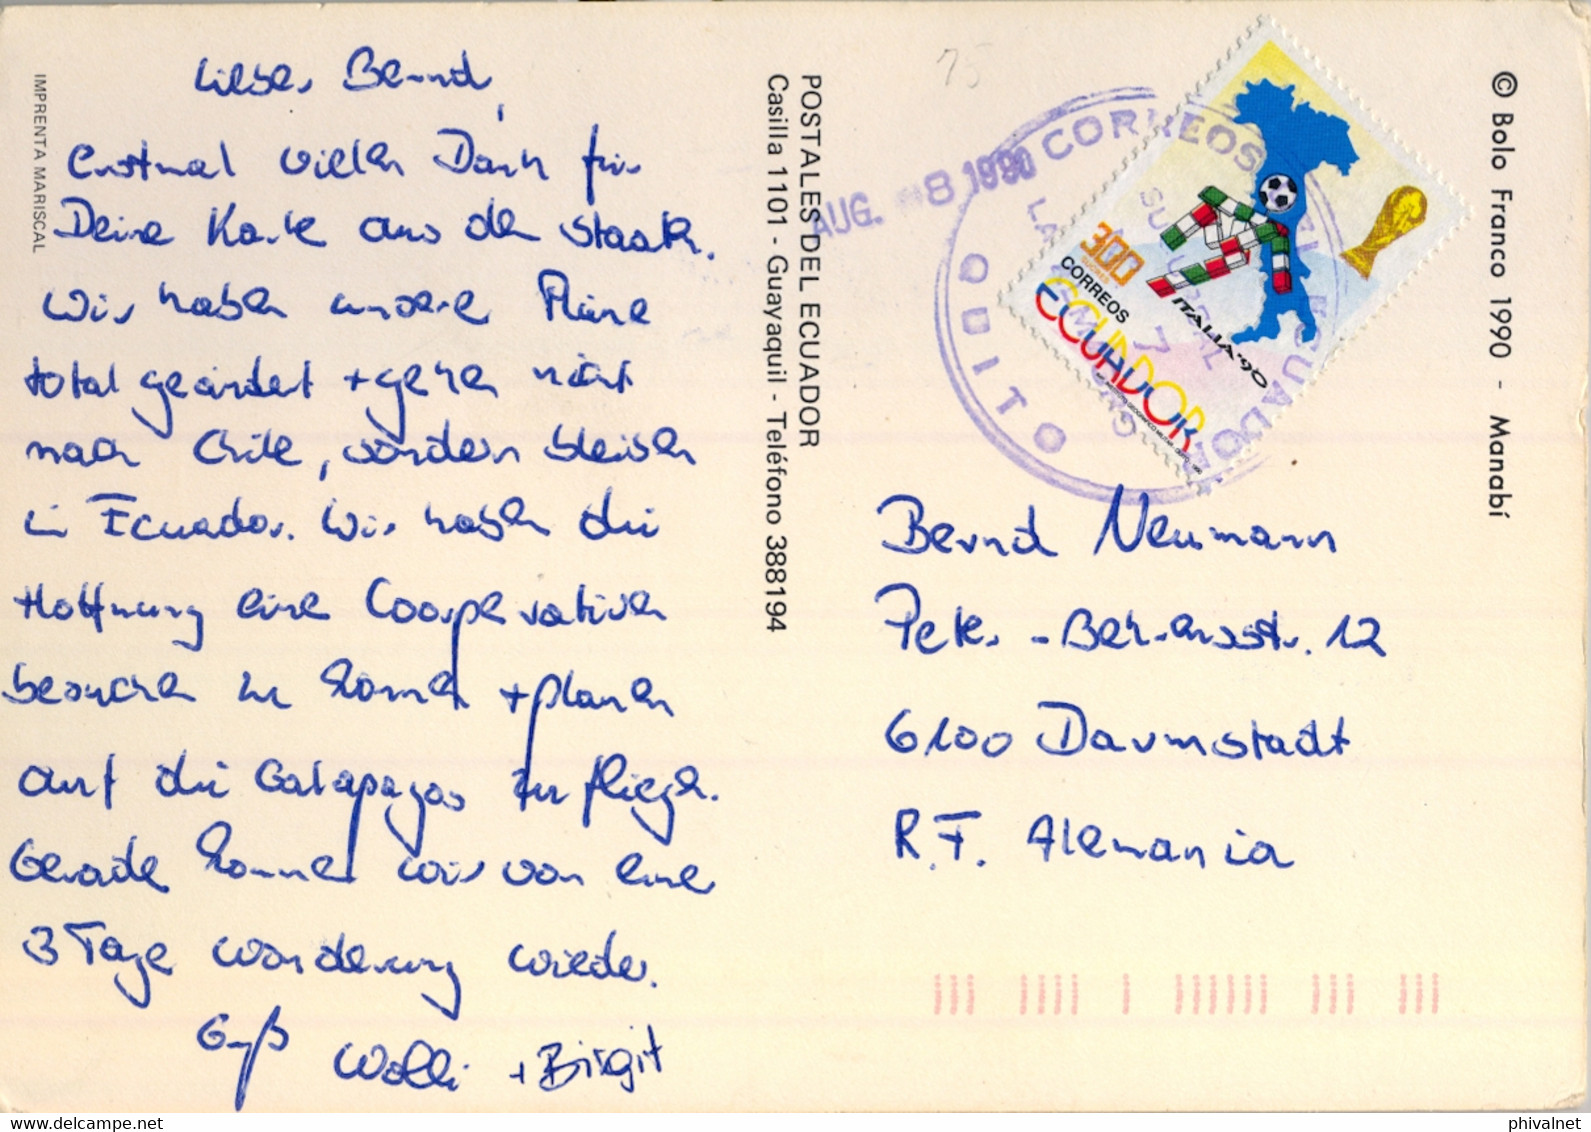 Lieber Bernd,
erstmal vielen Dank für
Deine Karte aus den Staaten.
Wir haben unsere Pläne
total geändert + gehen nicht
nach Chile, sondern bleiben
in Ecuador. Wir haben die
Hoffnung eine Cooperativen
besuchen zu können + planen
auf die Galapagos zu fliegen.
Gerade kommen wir von einer
3 Tage Wanderung wieder.
Gruß Wolli + Birgit
IMPRENTA MARISCAL
POSTALES DEL ECUADOR
Casilla 1101 - Guayaquil - Teléfono 388194
© Bolo Franco 1990 - Manabí
75
AUG. 8 1990
CORREOS DEL ECUADOR
SUCURSAL 7
QUITO
300
SUCRES
CORREOS
ECUADOR
ITALIA'90
Bernd Neumann
Peter-Behrensstr. 12
6100 Darmstadt
R.F. Alemania
phivalnet